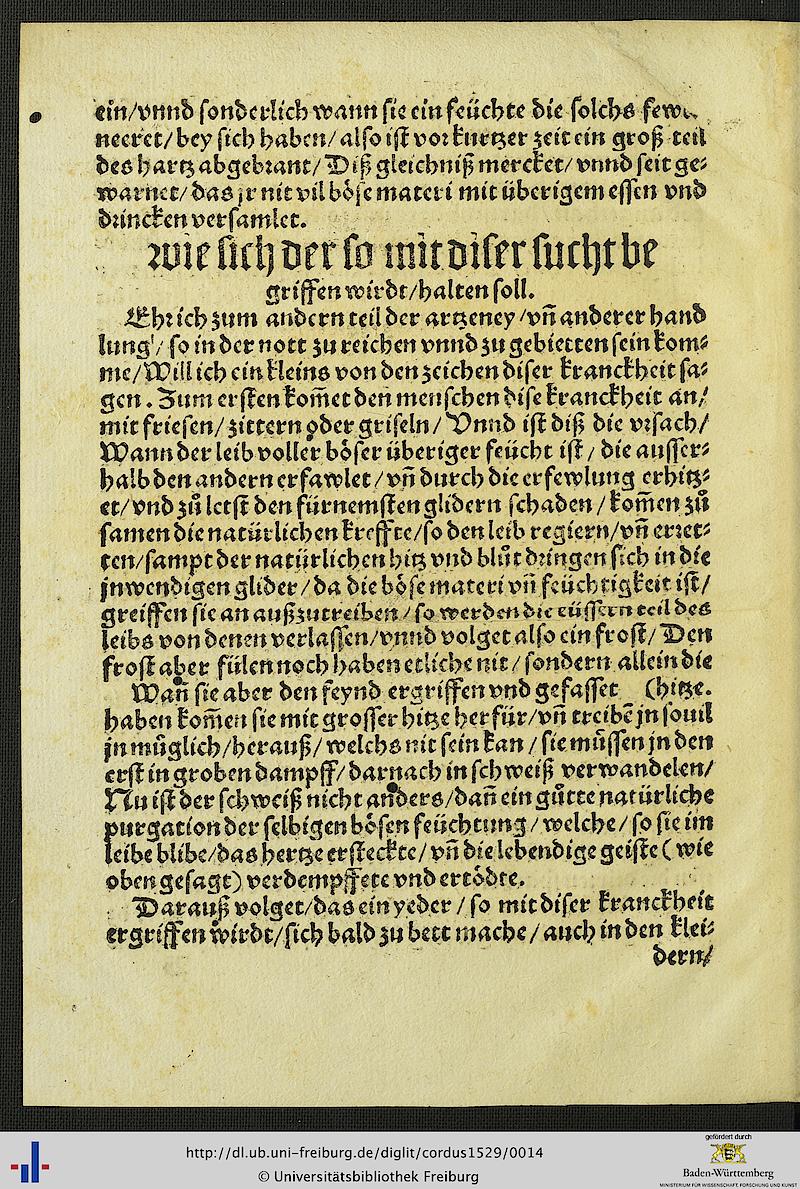 ein/vnnd sonderlich wann sie ein feüchte die solchs
neeret/bey sich haben/also ist vor kurtzer zeit ein groß teil
des hartz abgebrant/Diß gleichniß mercket/vnnd seit ge⸗
warnet/das jr nit vil böse materi mit überigem essen vnd
drincken versamlet.
wie sich der so mit diser sucht be
griffen wirdt/halten soll.
Ehr ich zum andern teil der artzeney/vñ anderer hand
lung/so in der nott zu reichen vnnd zu gebietten sein kom⸗
me/Will ich ein kleins von den zeichen diser kranckheit sa⸗
gen. Zum ersten kom̃et den menschen dise kranckheit an/
mit friesen/zittern oder griseln/Vnnd ist diß die vrsach/
Wann der leib voller böser überiger feücht ist/die ausser⸗
halb den andern erfawlet/vñ durch die erfewlung erhitz⸗
et/vnd zů letst den fürnemsten glidern schaden/kom̃en zů
samen die natürlichen kreffte/so den leib regiern/vñ erret⸗
ten/sampt der natürlichen hitz vnd blůt dringen sich in die
jnwendigen glider/da die böse materi vñ feüchtigkeit ist/
greiffen sie an außzutreiben/so werden die eüssern teil des
leibs von denen verlassen/vnnd volget also ein frost/Den
frost aber fülen noch haben etliche nit/sondern allein die
Wañ sie aber den feynd ergriffen vnd gefasset (hitze.
haben kom̃en sie mit grosser hitze herfür/vñ treibẽ jn souil
jn müglich/herauß/welchs nit sein kan/sie müssen jn den
erst in groben dampff/darnach in schweiß verwandelen/
Nu ist der schweiß nicht anders/dañ ein gůtte natürliche
purgation der selbigen bösen feüchtung/welche/so sie im
leibe blibe/das hertze ersteckte/vñ die lebendige geiste (wie
oben gesagt) verdempffete vnd ertödte.
Darauß volget/das ein yeder/so mit diser kranckheit
ergriffen wirdt/sich bald zu bett mache/auch in den klei⸗
dern/
http://dl.ub.uni-freiburg.de/diglit/cordus1529/0014
© Universitätsbibliothek Freiburg
gefördert durch
Baden-Württemberg
MINISTERIUM FÜR WISSENSCHAFT, FORSCHUNG UND KUNST